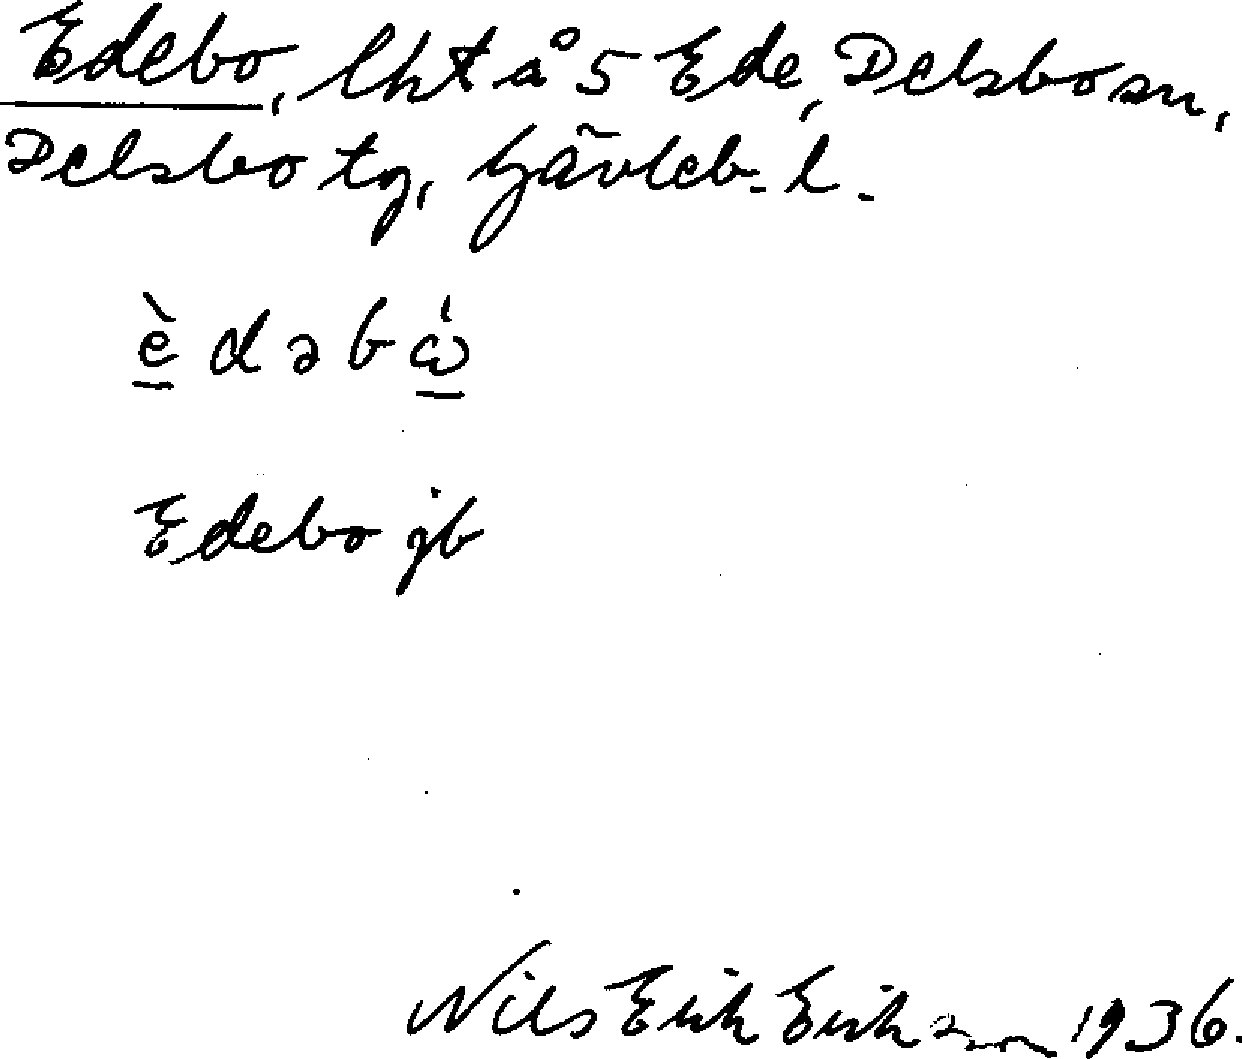 Edebo, lht å 5 Ede, Delsbo sn,
Delsbo tg, Gävleb. l.
è̱ d ə b ώ̱
Edebo jb
Nils Erik Erikson 1936.